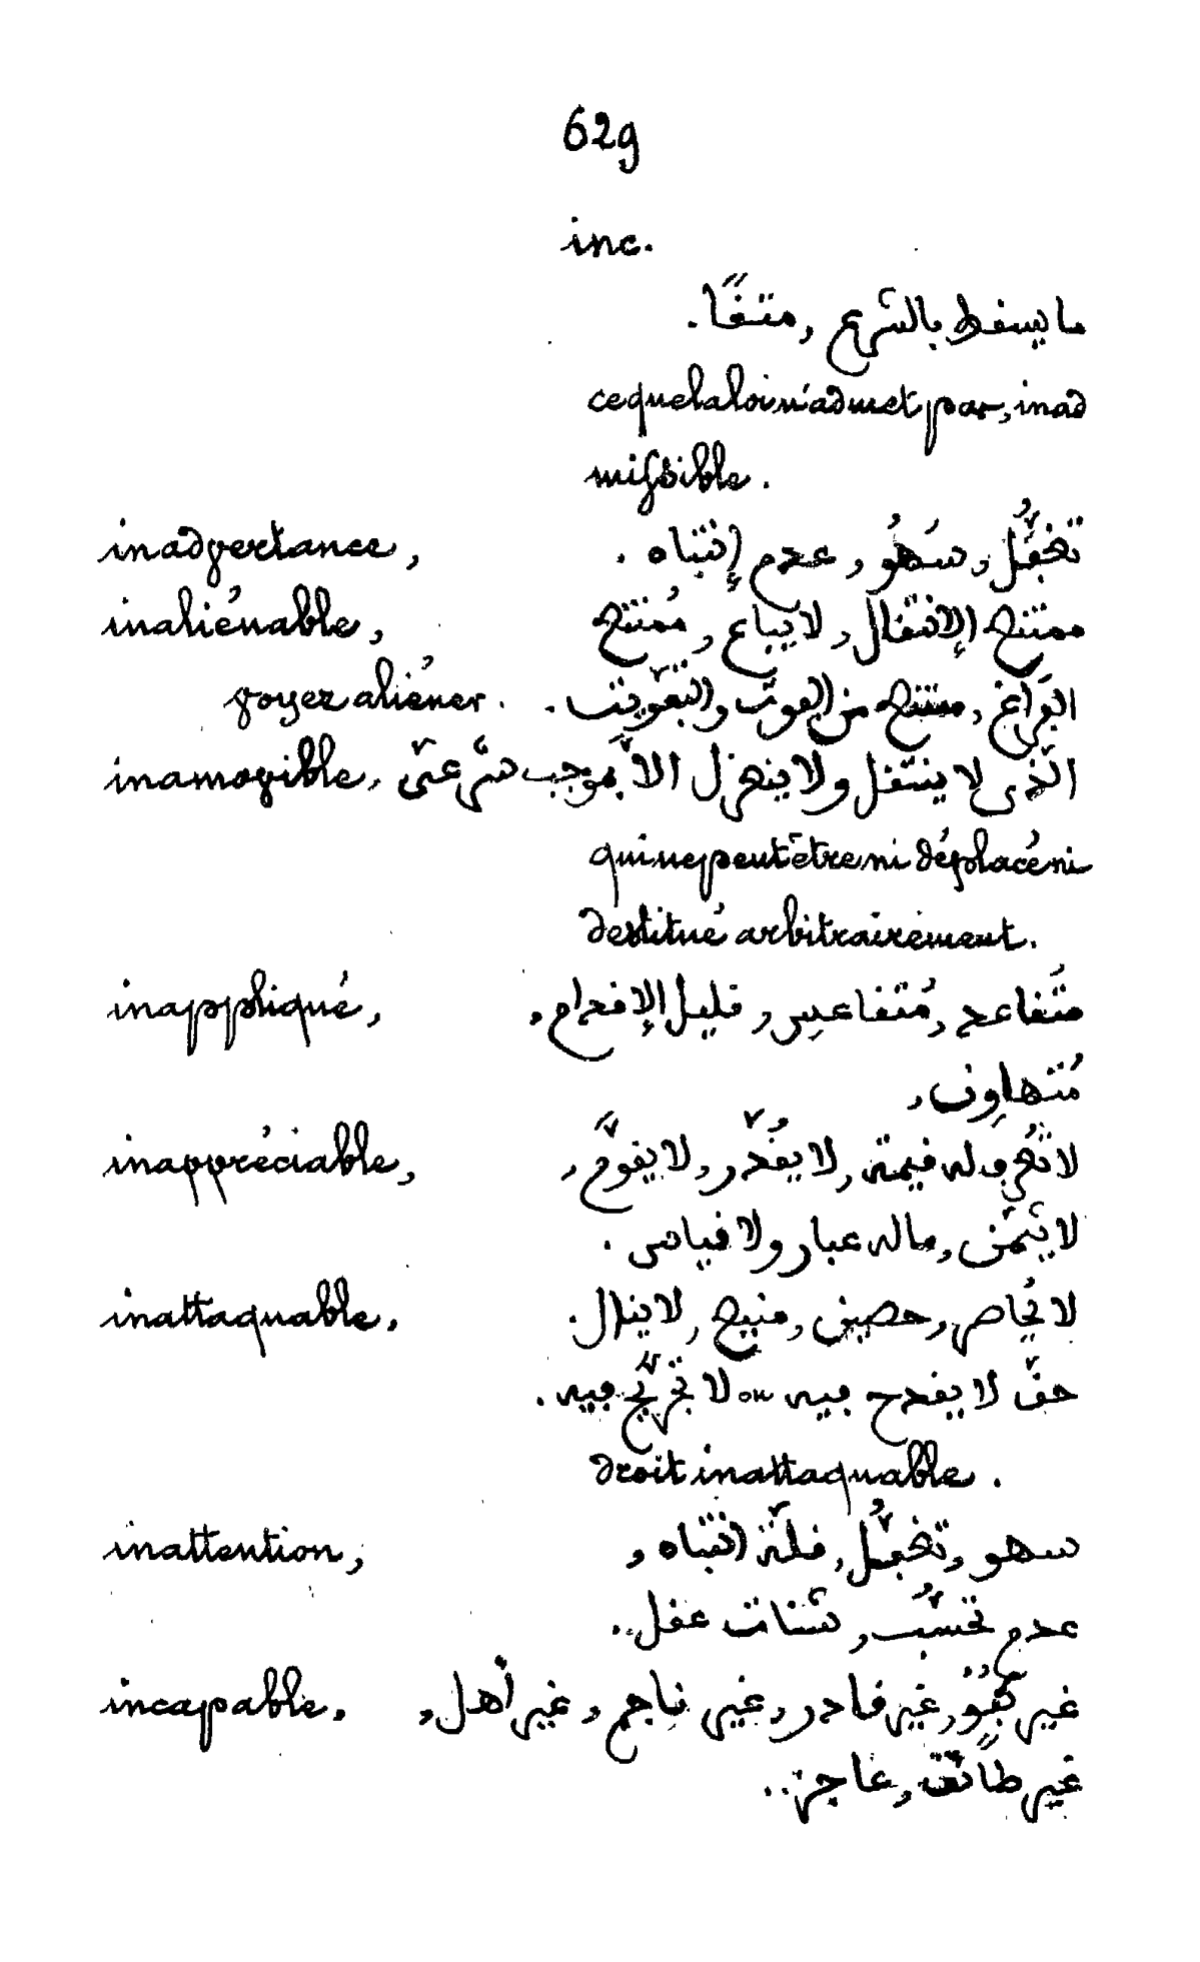 629
inc.
ما يسقط بالشرع , متنفًا.
ce que la loi n'admet pas, inad
missible.
inadvertance, تغَفُّل, سَهوُ, عدم إنتباه.
inaliénable, ممتنع الإنتقال, لا يباع, مُمتنع
voyez aliéner. الفراغ, ممتنع من الفوت والتفويت.
inamovible, الّذى لا ينتقل ولا ينعزل الاّ بموجب شرعىّ
qui ne peut être ni déplacé ni
destitué arbitrairement.
inappliqué, متَقاعد, مُتقاعِس, قليل الإقدام,
مُتهاوِن,
inappréciable, لا تُعرف له قيمة, لا يُقدّر, لا يقوَّم,
لا يثمّن, ماله عبار ولا قياس.
inattaquable, لا يُحاص, حصين, منيع, لا ينال.
حقّ لا يقدح فيه ou لا تجريح فيه.
droit inattaquable.
inattention, سهو, تغَفُّل, قلّة انتباه,
عدم تحسُّب, شتات عقل..
incapable, غير كُفؤ, غير قادر, غير ناجم, غير أهل,
غير طائق, عاجز..